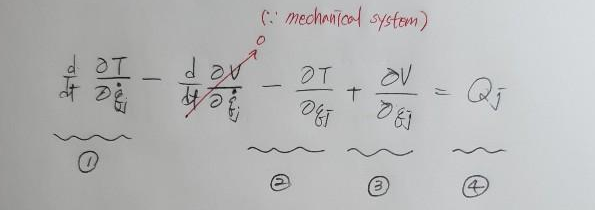 (∵ mechanical system)
0
d/dt ∂T/∂q̇j − d/dt ∂V/∂q̇j − ∂T/∂qj + ∂V/∂qj = Qj
① ② ③ ④